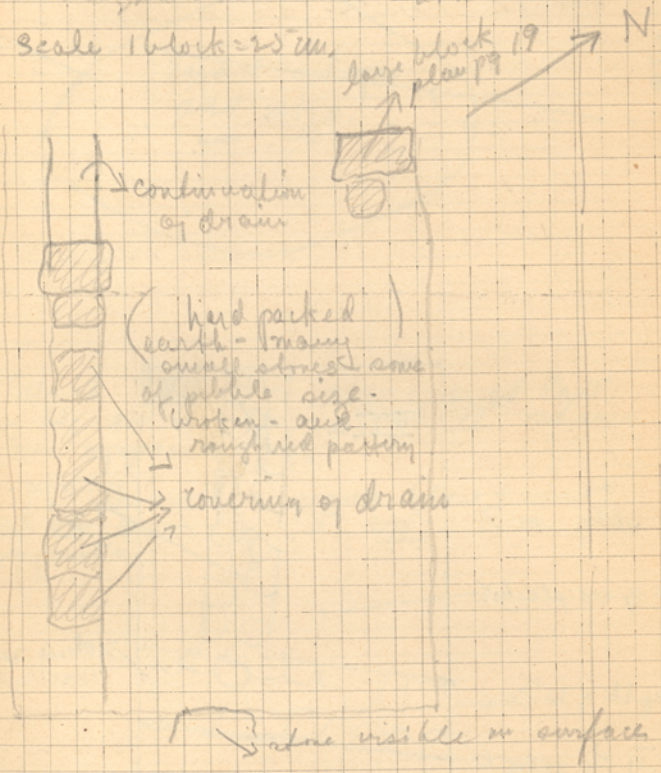 Scale 1 block = 25 cm.
N
large block
plan pg 19
continuation
of drain
( hard packed )
earth - many
small stones - some
of pebble size.
broken - and
rough red pottery
covering of drain
stone visible on surface